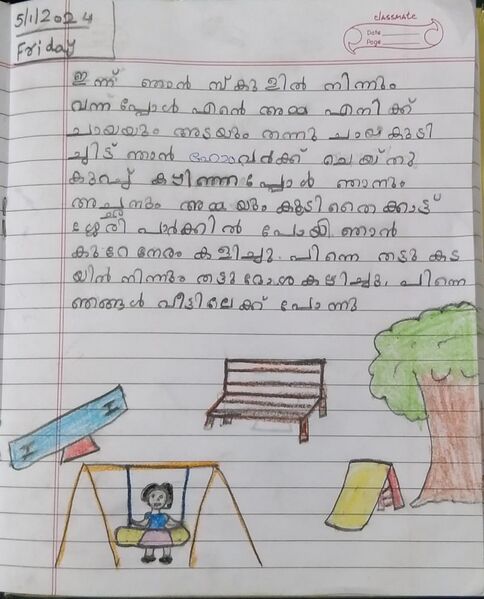 5/1/2024
Friday
classmate
Date
Page
ഇന്ന് ഞാൻ സ്കുളിൽ നിന്നും
വന്നപ്പോൾ എൻെ അമ്മ എനിക്ക്
ചായയും അടയും തന്നു ചായ കുടി
ച്ചിട് ഞാൻ ഹോംവർക്ക് ചെയ്തു
കുറച്ച് കഴിഞ്ഞപ്പോൾ ഞാനും
അച്ഛനും അമ്മയും കൂടി തൈക്കാട്ട്
ശ്ശേരി പാർക്കിൽ പോയി. ഞാൻ
കുറേ നേരം കളിച്ചു. പിന്നെ തട്ടു കട
യിൻ നിന്നും തട്ടുദോശ കഴിച്ചു. പിന്നെ
ഞങ്ങൾ വീട്ടിലെക്ക് പോന്നു